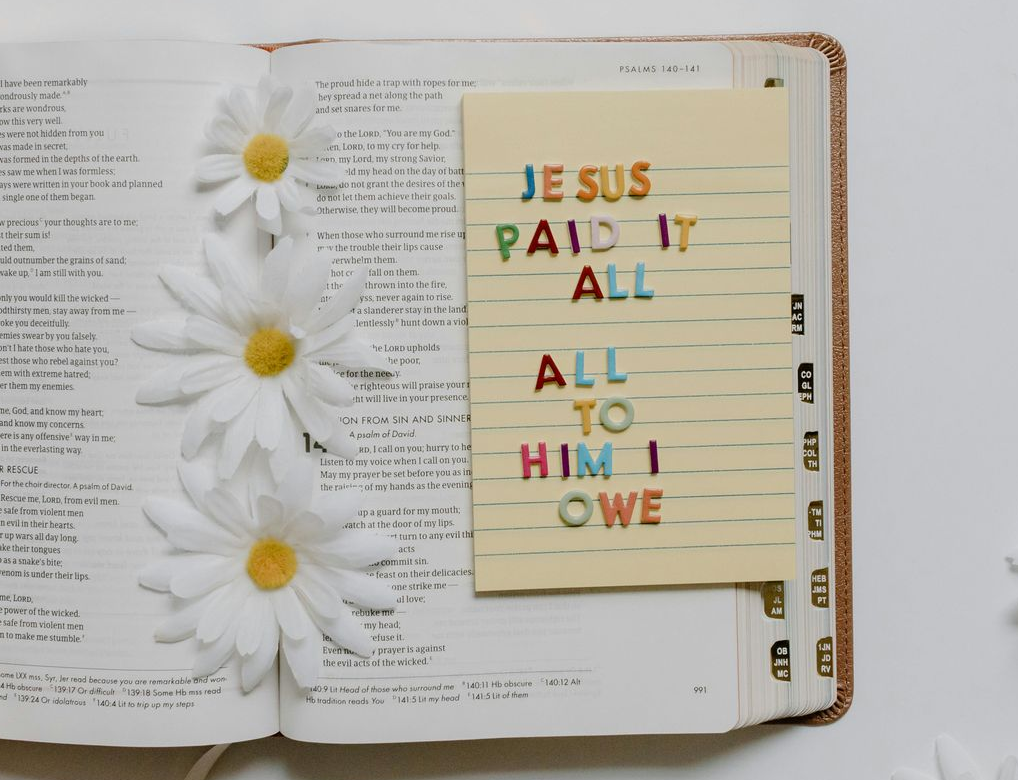 I have been remarkably
ondrously made.
rks are wondrous,
ow this very well.
es were not hidden from you
was made in secret,
was formed in the depths of the earth.
es saw me when I was formless;
ays were written in your book and planned
single one of them began.
w precious your thoughts are to me;
t their sum is!
ted them,
uld outnumber the grains of sand;
wake up, I am still with you.
only you would kill the wicked —
odthirsty men, stay away from me —
oke you deceitfully.
emies swear by you falsely.
on't I hate those who hate you,
est those who rebel against you?
em with extreme hatred;
er them my enemies.
me, God, and know my heart;
and know my concerns.
ere is any offensive way in me;
in the everlasting way.
R RESCUE
For the choir director. A psalm of David.
Rescue me, LORD, from evil men.
e safe from violent men
n evil in their hearts.
r up wars all day long.
ake their tongues
as a snake's bite;
venom is under their lips.
me, LORD,
e power of the wicked.
e safe from violent men
n to make me stumble.
ome LXX mss, Syr, Jer read because you are remarkable and won
4 Hb obscure 139:17 Or difficult 139:18 Some Hb mss read
139:24 Or idolatrous 140:4 Lit to trip up my steps
PSALMS 140–141
The proud hide a trap with ropes for me;
they spread a net along the path
and set snares for me.
to the LORD, "You are my God."
LORD, to my cry for help.
LORD, my Lord, my strong Savior,
eld my head on the day of batt
LORD, do not grant the desires of the
do not let them achieve their goals.
Otherwise, they will become proud.
When those who surround me rise up
may the trouble their lips cause
overwhelm them.
hot co fall on them.
thrown into the fire,
yss, never again to rise.
a slanderer stay in the land
lentlessly hunt down a viol
the LORD upholds
the poor,
ice for the needy.
e righteous will praise your
ght will live in your presence.
ION FROM SIN AND SINNER
14 A psalm of David.
LORD, I call on you; hurry to he
Listen to my voice when I call on you.
May my prayer be set before you as in
the raising of my hands as the evening
up a guard for my mouth;
watch at the door of my lips.
rt turn to any evil thi
acts
commit sin.
feast on their delicacies.
one strike me —
ul love;
rebuke me —
my head;
refuse it.
Even now my prayer is against
the evil acts of the wicked.
140:9 Lit Head of those who surround me 140:11 Hb obscure 140:12 Alt
Hb tradition reads You 141:5 Lit my head 141:5 Lit of them
991
JESUS
PAID IT
ALL
ALL
TO
HIM I
OWE
JN
AC
RM
CO
GL
EPH
PHP
COL
TH
TM
TI
PHM
HEB
JMS
PT
JL
AM
OB
JNH
MC
1JN
JD
RV